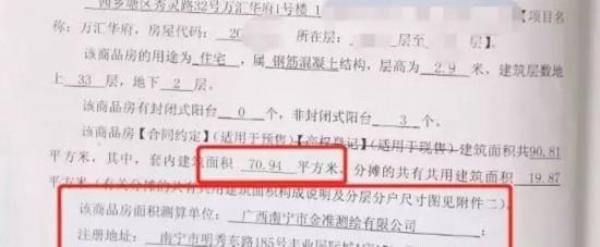 西乡塘区秀灵路32号万汇华府1号楼 1 【项目名
称：万汇华府，房屋代码：20 所在层： 层至 】。
该商品房的用途为 住宅 ，属 钢筋混凝土 结构，层高为 2.9 米，建筑层数地
上 33 层，地下 2 层。
该商品房有封闭式阳台 0 个，非封闭式阳台 3 个。
该商品房【合同约定】（适用于预售）【产权登记】（适用于现售）建筑面积共90.81
平方米，其中，套内建筑面积 70.94 平方米，分摊的共有共用建筑面积 19.87
平方米（有关分摊的共有共用建筑面积构成说明及分层分户尺寸图见附件二）。
该商品房面积测算单位：广西南宁市金准测绘有限公司 ；
注册地址： 南宁市明秀东路185号丰业国际城